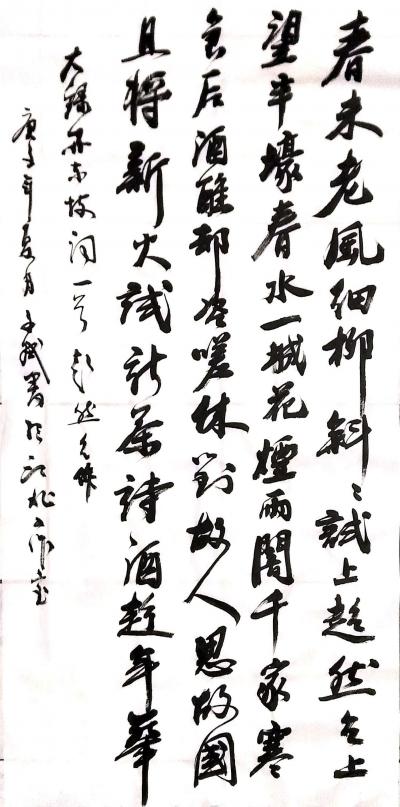 春未老風細柳斜〻試上超然台上
望半壕春水一城花煙雨闇千家寒
食后酒醒却咨嗟休對故人思故國
且將新火試新茶詩酒趁年華
錄苏东坡词一首 超然台作
庚子年夏月書於作室